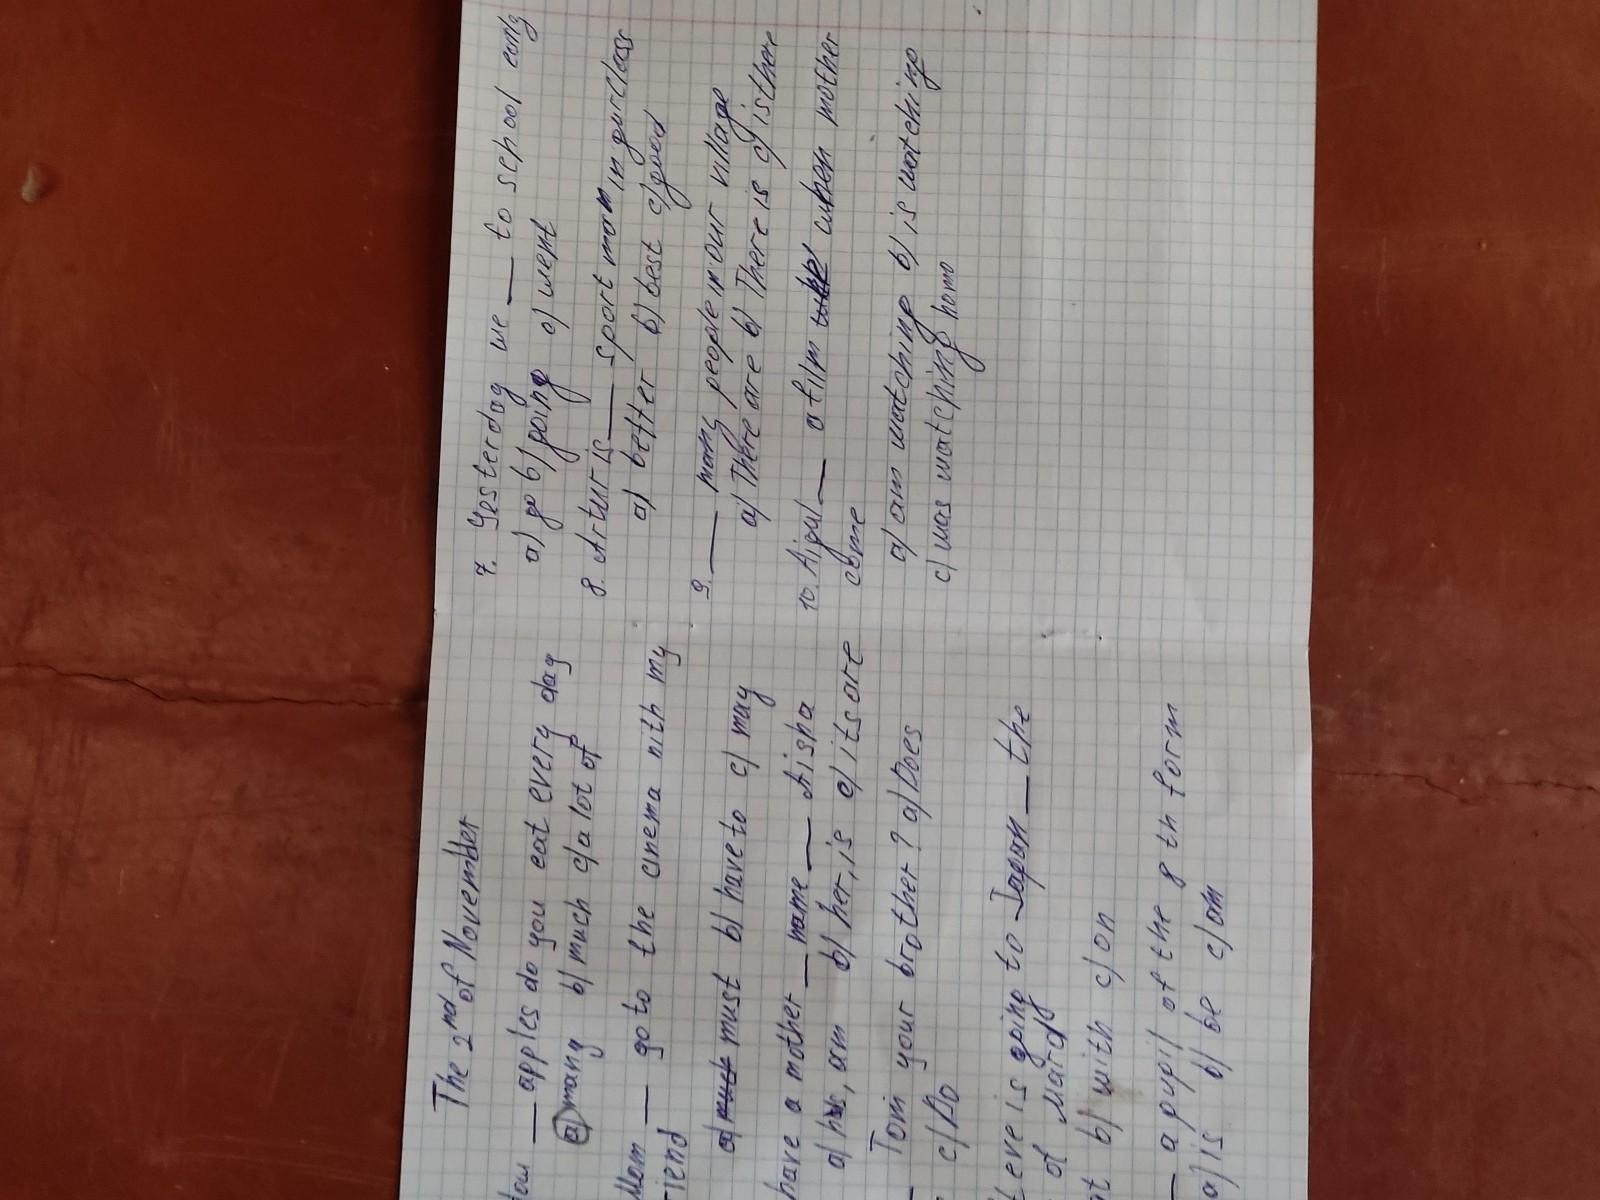 The 2nd of November
How ___ apples do you eat every day
a) many b) much c) a lot of
Mom ___ go to the cinema with my
friend
a) must b) have to c) may
have a mother ___ name ___ Aisha
a) his, am b) her, is c) its are
___ Tom your brother? a) Does
c) Do
Steve is going to Japan ___ the
of March
at b) with c) on
___ a pupil of the 8 th form
a) is b) be c) am
7. Yesterday we ___ to school
a) go b) going c) went
8. Artur is ___ sport man in our class
a) better b) best c) good
9. ___ many people in our village
a) There are b) There is c) is there
10. Aigul ___ a film when mother
come
a) am watching b) is watching
c) was watching home